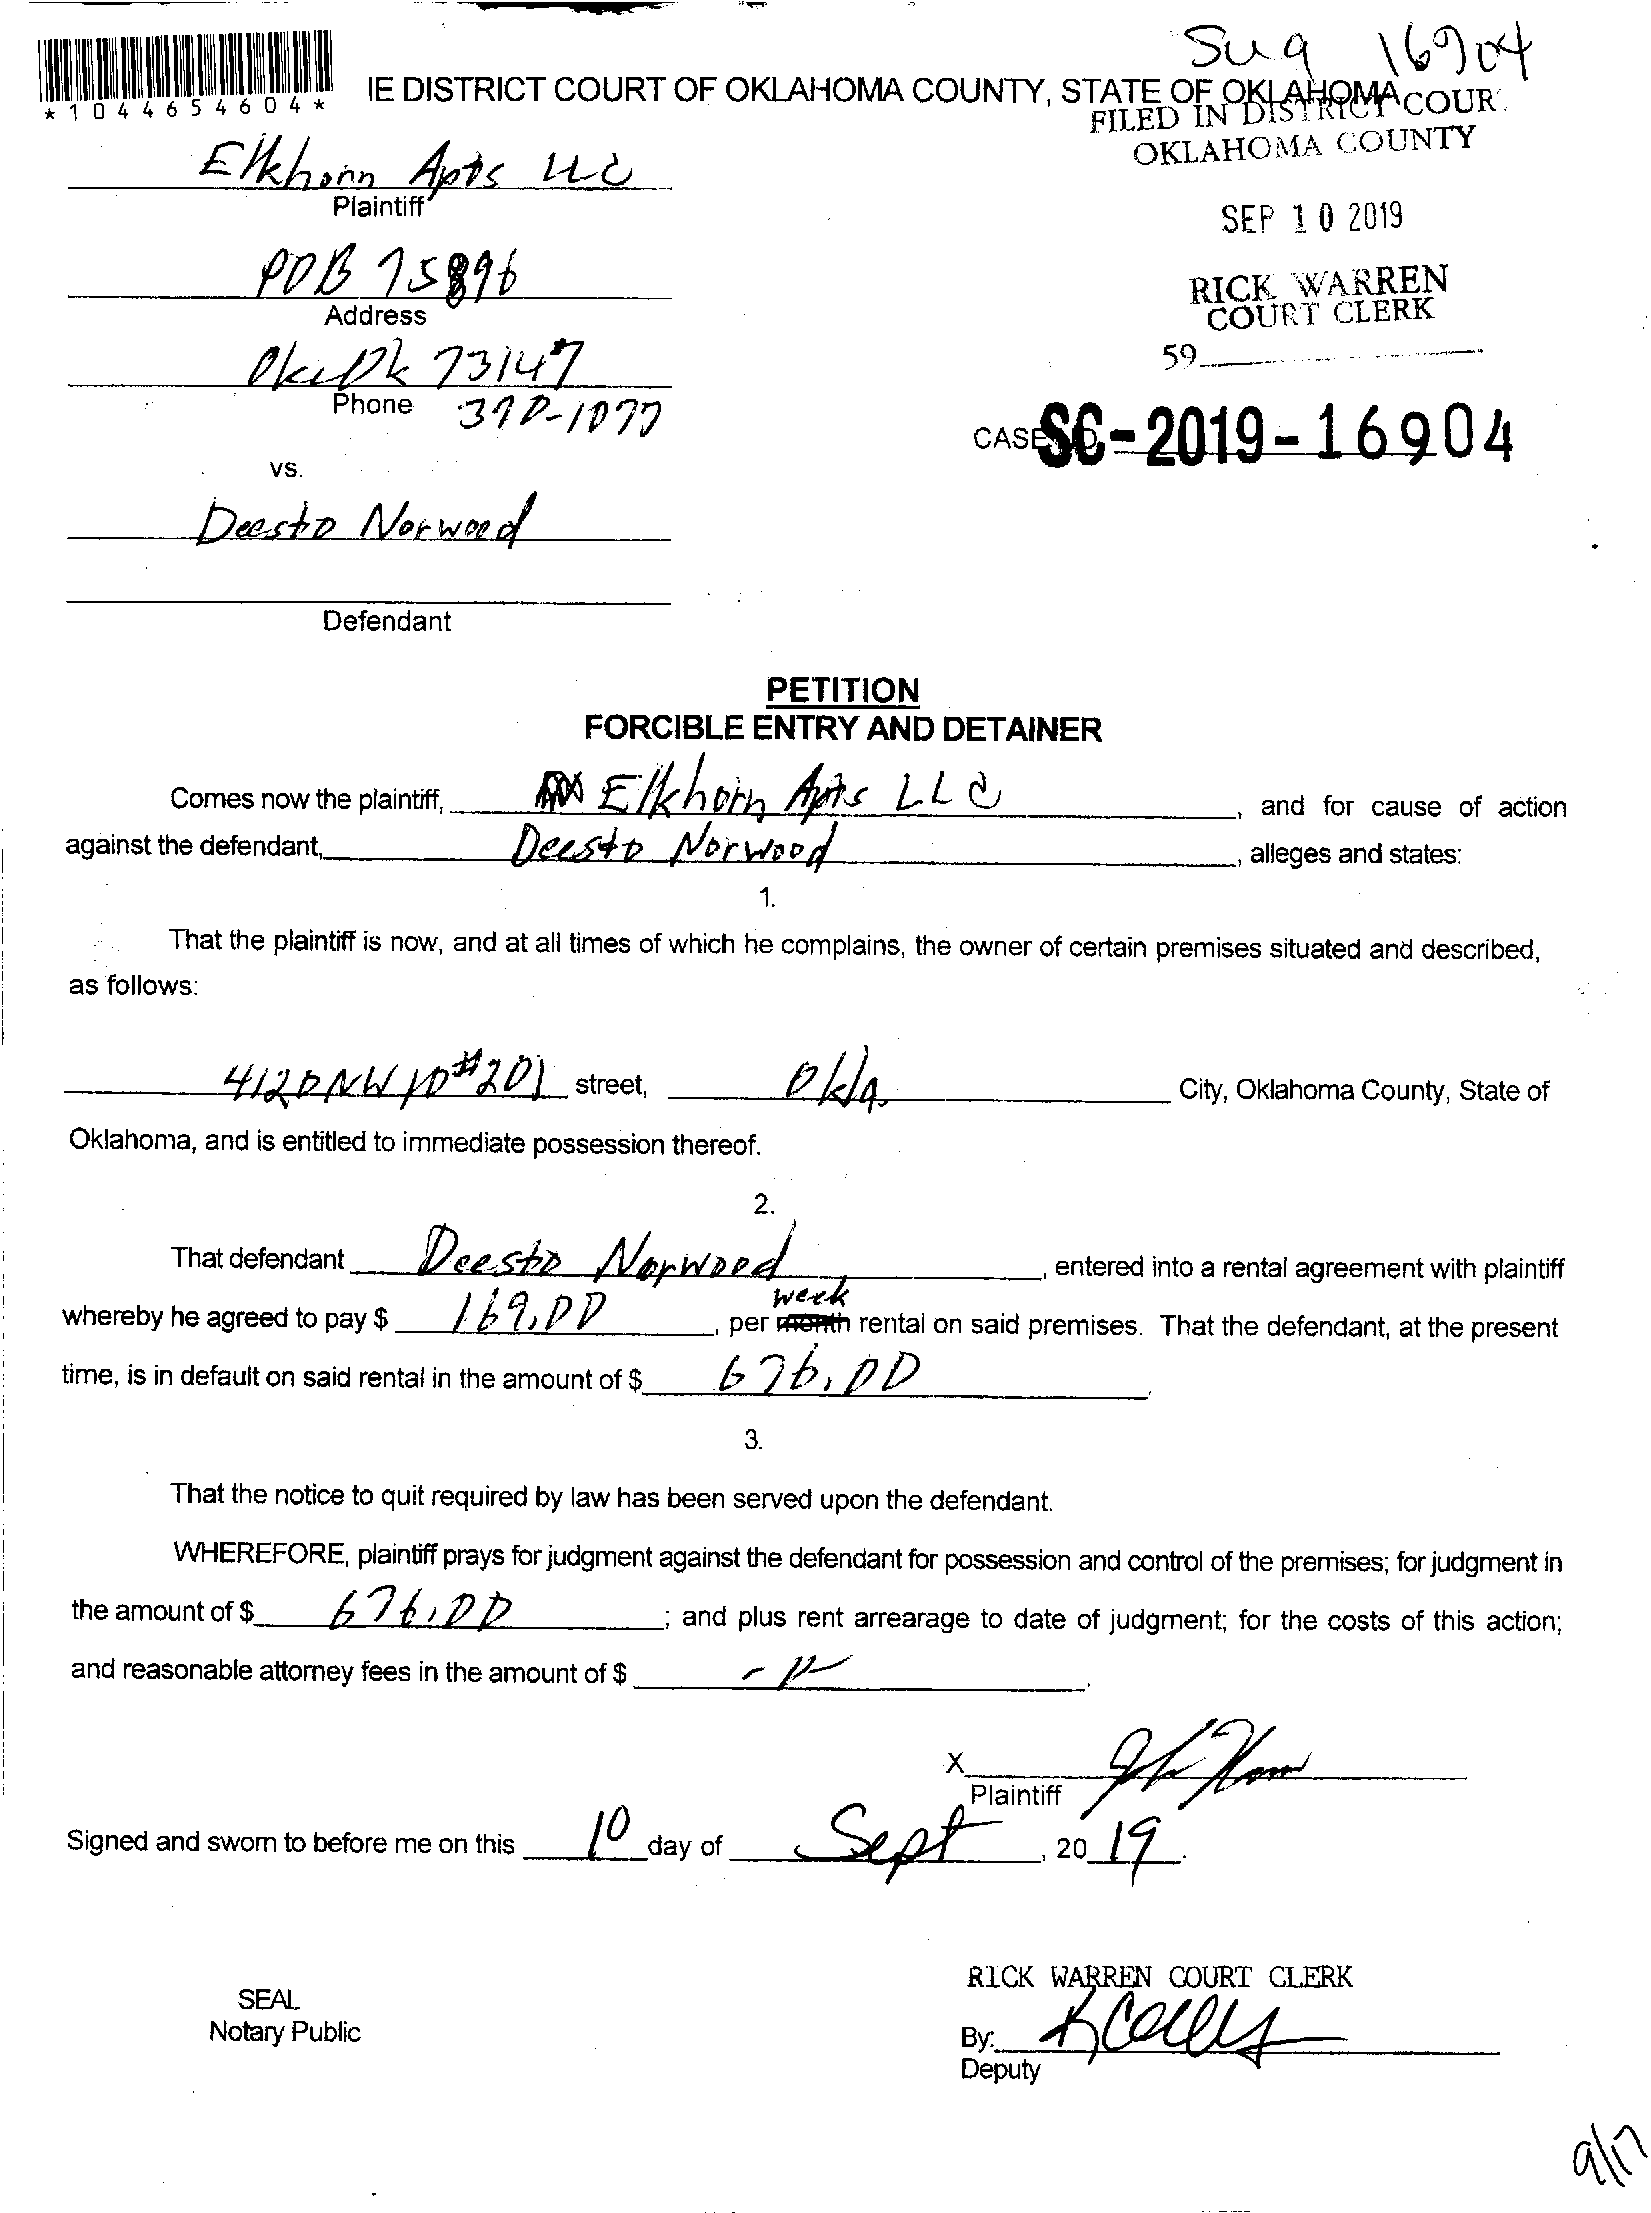 Sug 16904
*1044654604*
IE DISTRICT COURT OF OKLAHOMA COUNTY, STATE OF OKLAHOMA
FILED IN DISTRICT COUR
OKLAHOMA COUNTY
Elkhorn Apts LLC
Plaintiff
SEP 10 2019
POB 75896
Address
RICK WARREN
COURT CLERK
OkcOk 73147
59
Phone 370-1077
CASE SC-2019-16904
vs.
Deesto Norwood
Defendant
PETITION
FORCIBLE ENTRY AND DETAINER
Comes now the plaintiff, Elkhorn Apts LLC, and for cause of action
against the defendant, Deesto Norwood, alleges and states:
1.
That the plaintiff is now, and at all times of which he complains, the owner of certain premises situated and described,
as follows:
4120 NW 10 #201 street, Okla. City, Oklahoma County, State of
Oklahoma, and is entitled to immediate possession thereof.
2.
That defendant Deesto Norwood, entered into a rental agreement with plaintiff
week
whereby he agreed to pay $ 169.00, per month rental on said premises. That the defendant, at the present
time, is in default on said rental in the amount of $ 676.00.
3.
That the notice to quit required by law has been served upon the defendant.
WHEREFORE, plaintiff prays for judgment against the defendant for possession and control of the premises; for judgment in
the amount of $ 676.00; and plus rent arrearage to date of judgment; for the costs of this action;
and reasonable attorney fees in the amount of $
X
Plaintiff
Signed and sworn to before me on this 10 day of Sept, 2019.
RICK WARREN COURT CLERK
SEAL
Notary Public
By:
Deputy
9/17